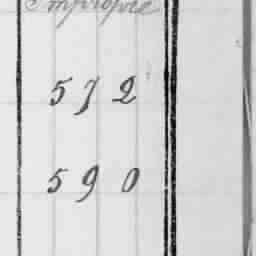 Impropre
572
590